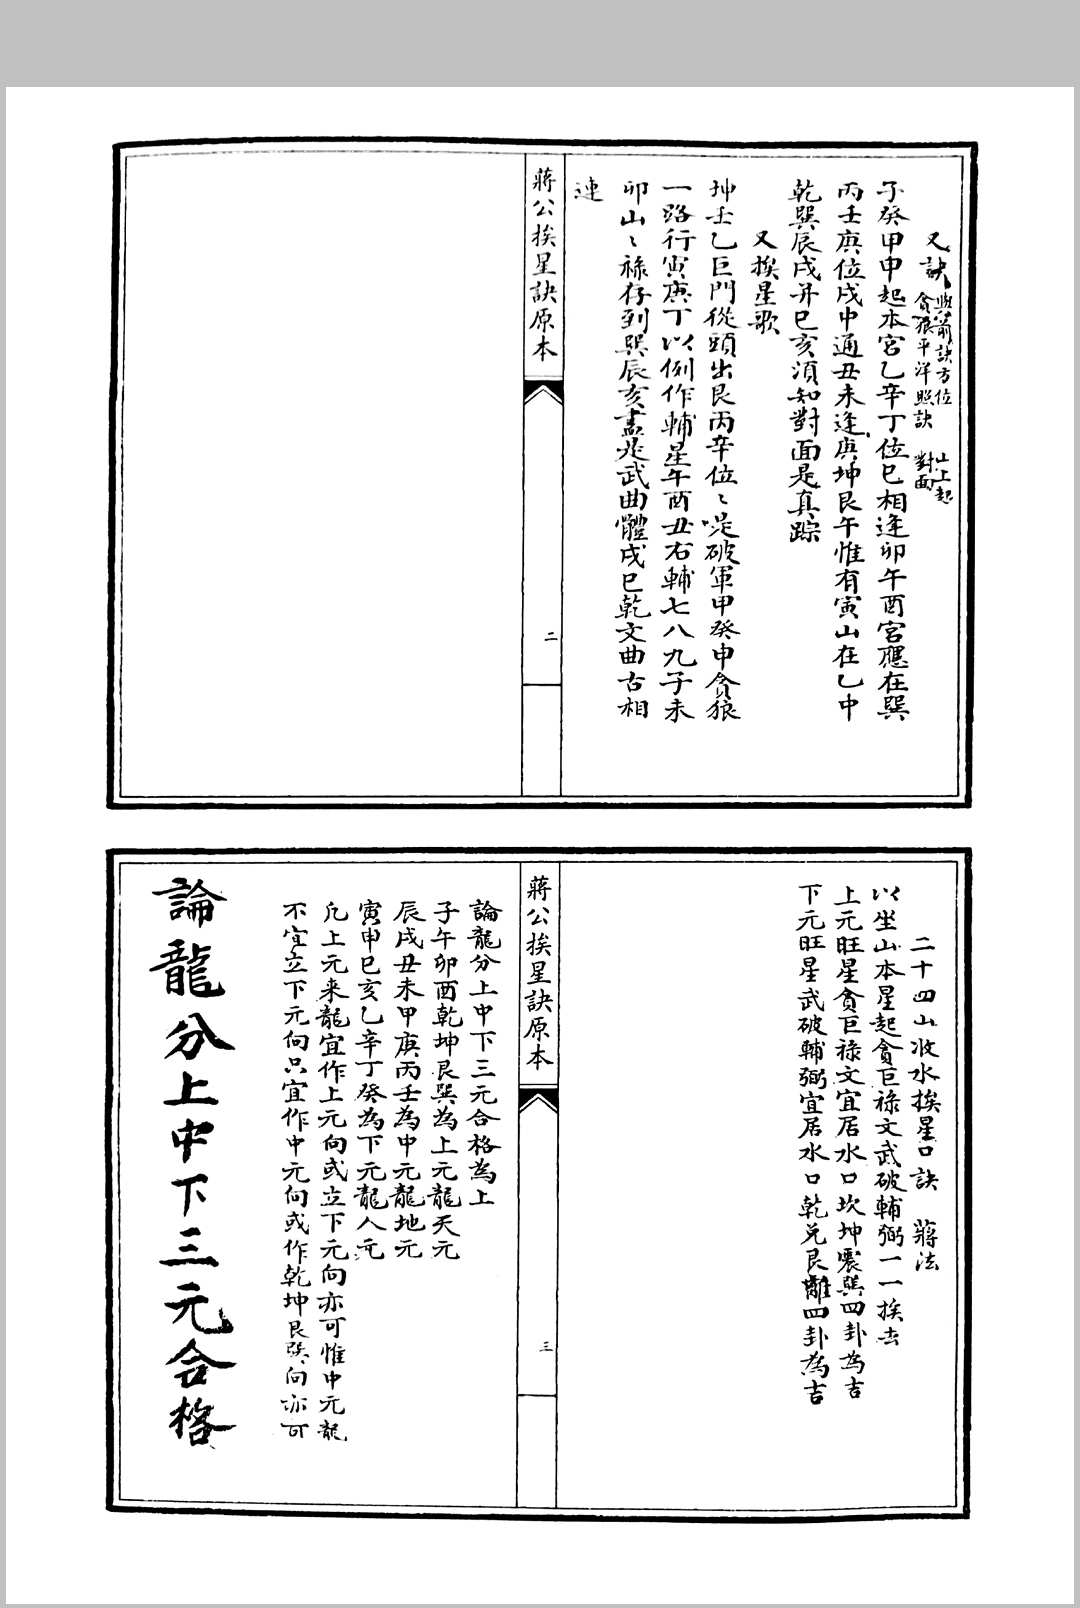 又訣
與前訣方位
貪狼平洋照訣
山上起
對面
子癸甲申起本宮乙辛丁位巳相逢卯午酉宮應在巽
丙壬庚位戌中通丑未逢庚坤艮午惟有寅山在乙中
乾巽辰戌并巳亥須知對面是真踪
又挨星歌
坤壬乙巨門從頭出艮丙辛位〻是破軍甲癸申貪狼
一路行寅庚丁以例作輔星午酉丑右輔七八九子未
卯山〻祿存到巽辰亥盡是武曲體戌巳乾文曲古相
連
蔣公挨星訣原本
二
二十四山收水挨星口訣 蔣法
以坐山本星起貪巨祿文武破輔弼一一挨去
上元旺星貪巨祿文宜居水口坎坤震巽四卦為吉
下元旺星武破輔弼宜居水口乾兌艮離四卦為吉
蔣公挨星訣原本
三
論龍分上中下三元合格為上
子午卯酉乾坤艮巽為上元龍天元
辰戌丑未甲庚丙壬為中元龍地元
寅申巳亥乙辛丁癸為下元龍人元
凡上元來龍宜作上元向或立下元向亦可惟中元龍
不宜立下元向只宜作中元向或作乾坤艮巽向亦可
論龍分上中下三元合格